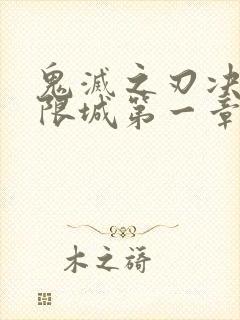 鬼滅之刃决
限城第一章
木之禱